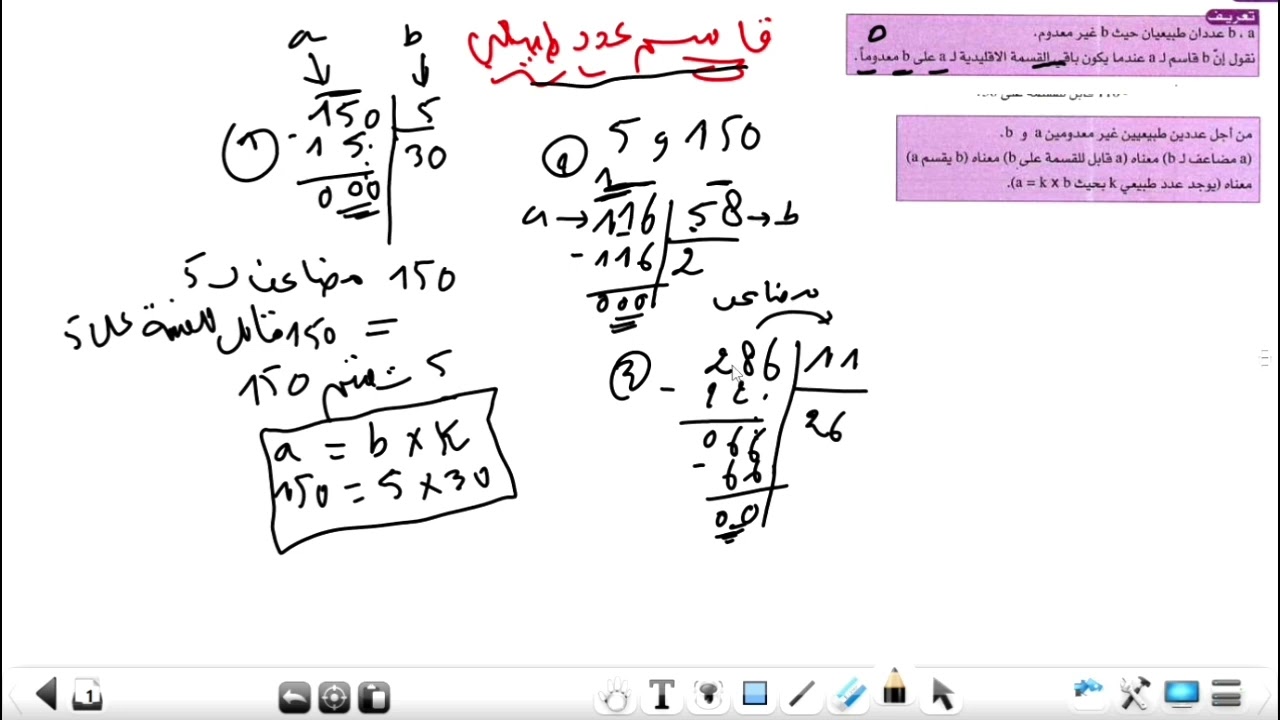 قاسم عدد طبيعي
تعريف
b ، a عددان طبيعيان حيث b غير معدوم.
0
نقول إنّ b قاسم لـ a عندما يكون باقي القسمة الاقليدية لـ a على b معدوماً.
من أجل عددين طبيعيين غير معدومين a و b.
(a مضاعف لـ b) معناه (a قابل للقسمة على b) معناه (b يقسم a)
معناه (يوجد عدد طبيعي k بحيث a = k x b).
a b
150 5
- 15.
30
000
5 و 150
1
a → 116 58 → b
- 116 2
000
150 مضاعف لـ 5
= 150 قابل للقسمة على 5
5 تقسم 150
a = b × K
150 = 5 × 30
مضاعف
286 11
- 22.
26
066
- 66
00
1